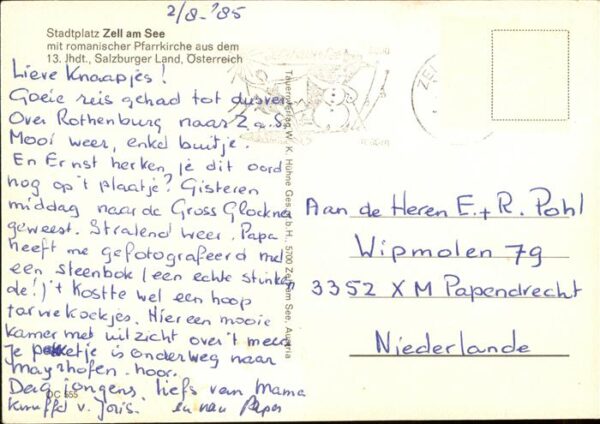 2/8-'85
Stadtplatz Zell am See
mit romanischer Pfarrkirche aus dem
13. Jhdt., Salzburger Land, Österreich
Lieve Knaapjes!
Goeie reis gehad tot dusver
Over Rothenburg naar Z.a.S.
Mooi weer, enkel buitje.
En Ernst herken je dit oord
nog op 't plaatje? Gisteren
middag naar de Gross Glockner
geweest. Stralend weer. Papa
heeft me gefotografeerd met
een steenbok (een echte stinken
de!) 't Kostte wel een hoop
tarwekoekjes. Hier een mooie
kamer met uitzicht over 't meer
Je pakketje is onderweg naar
Mayrhofen. hoor.
Dag jongens, liefs van Mama
Knuffel v. Joris. en van Papa
DC 555
Tauernverlag W. K. Hühne Ges. b.H., 5700 Zell am See, Austria
ZEL
Aan de Heren E. + R. Pohl
Wipmolen 79
3352 XM Papendrecht
Niederlande